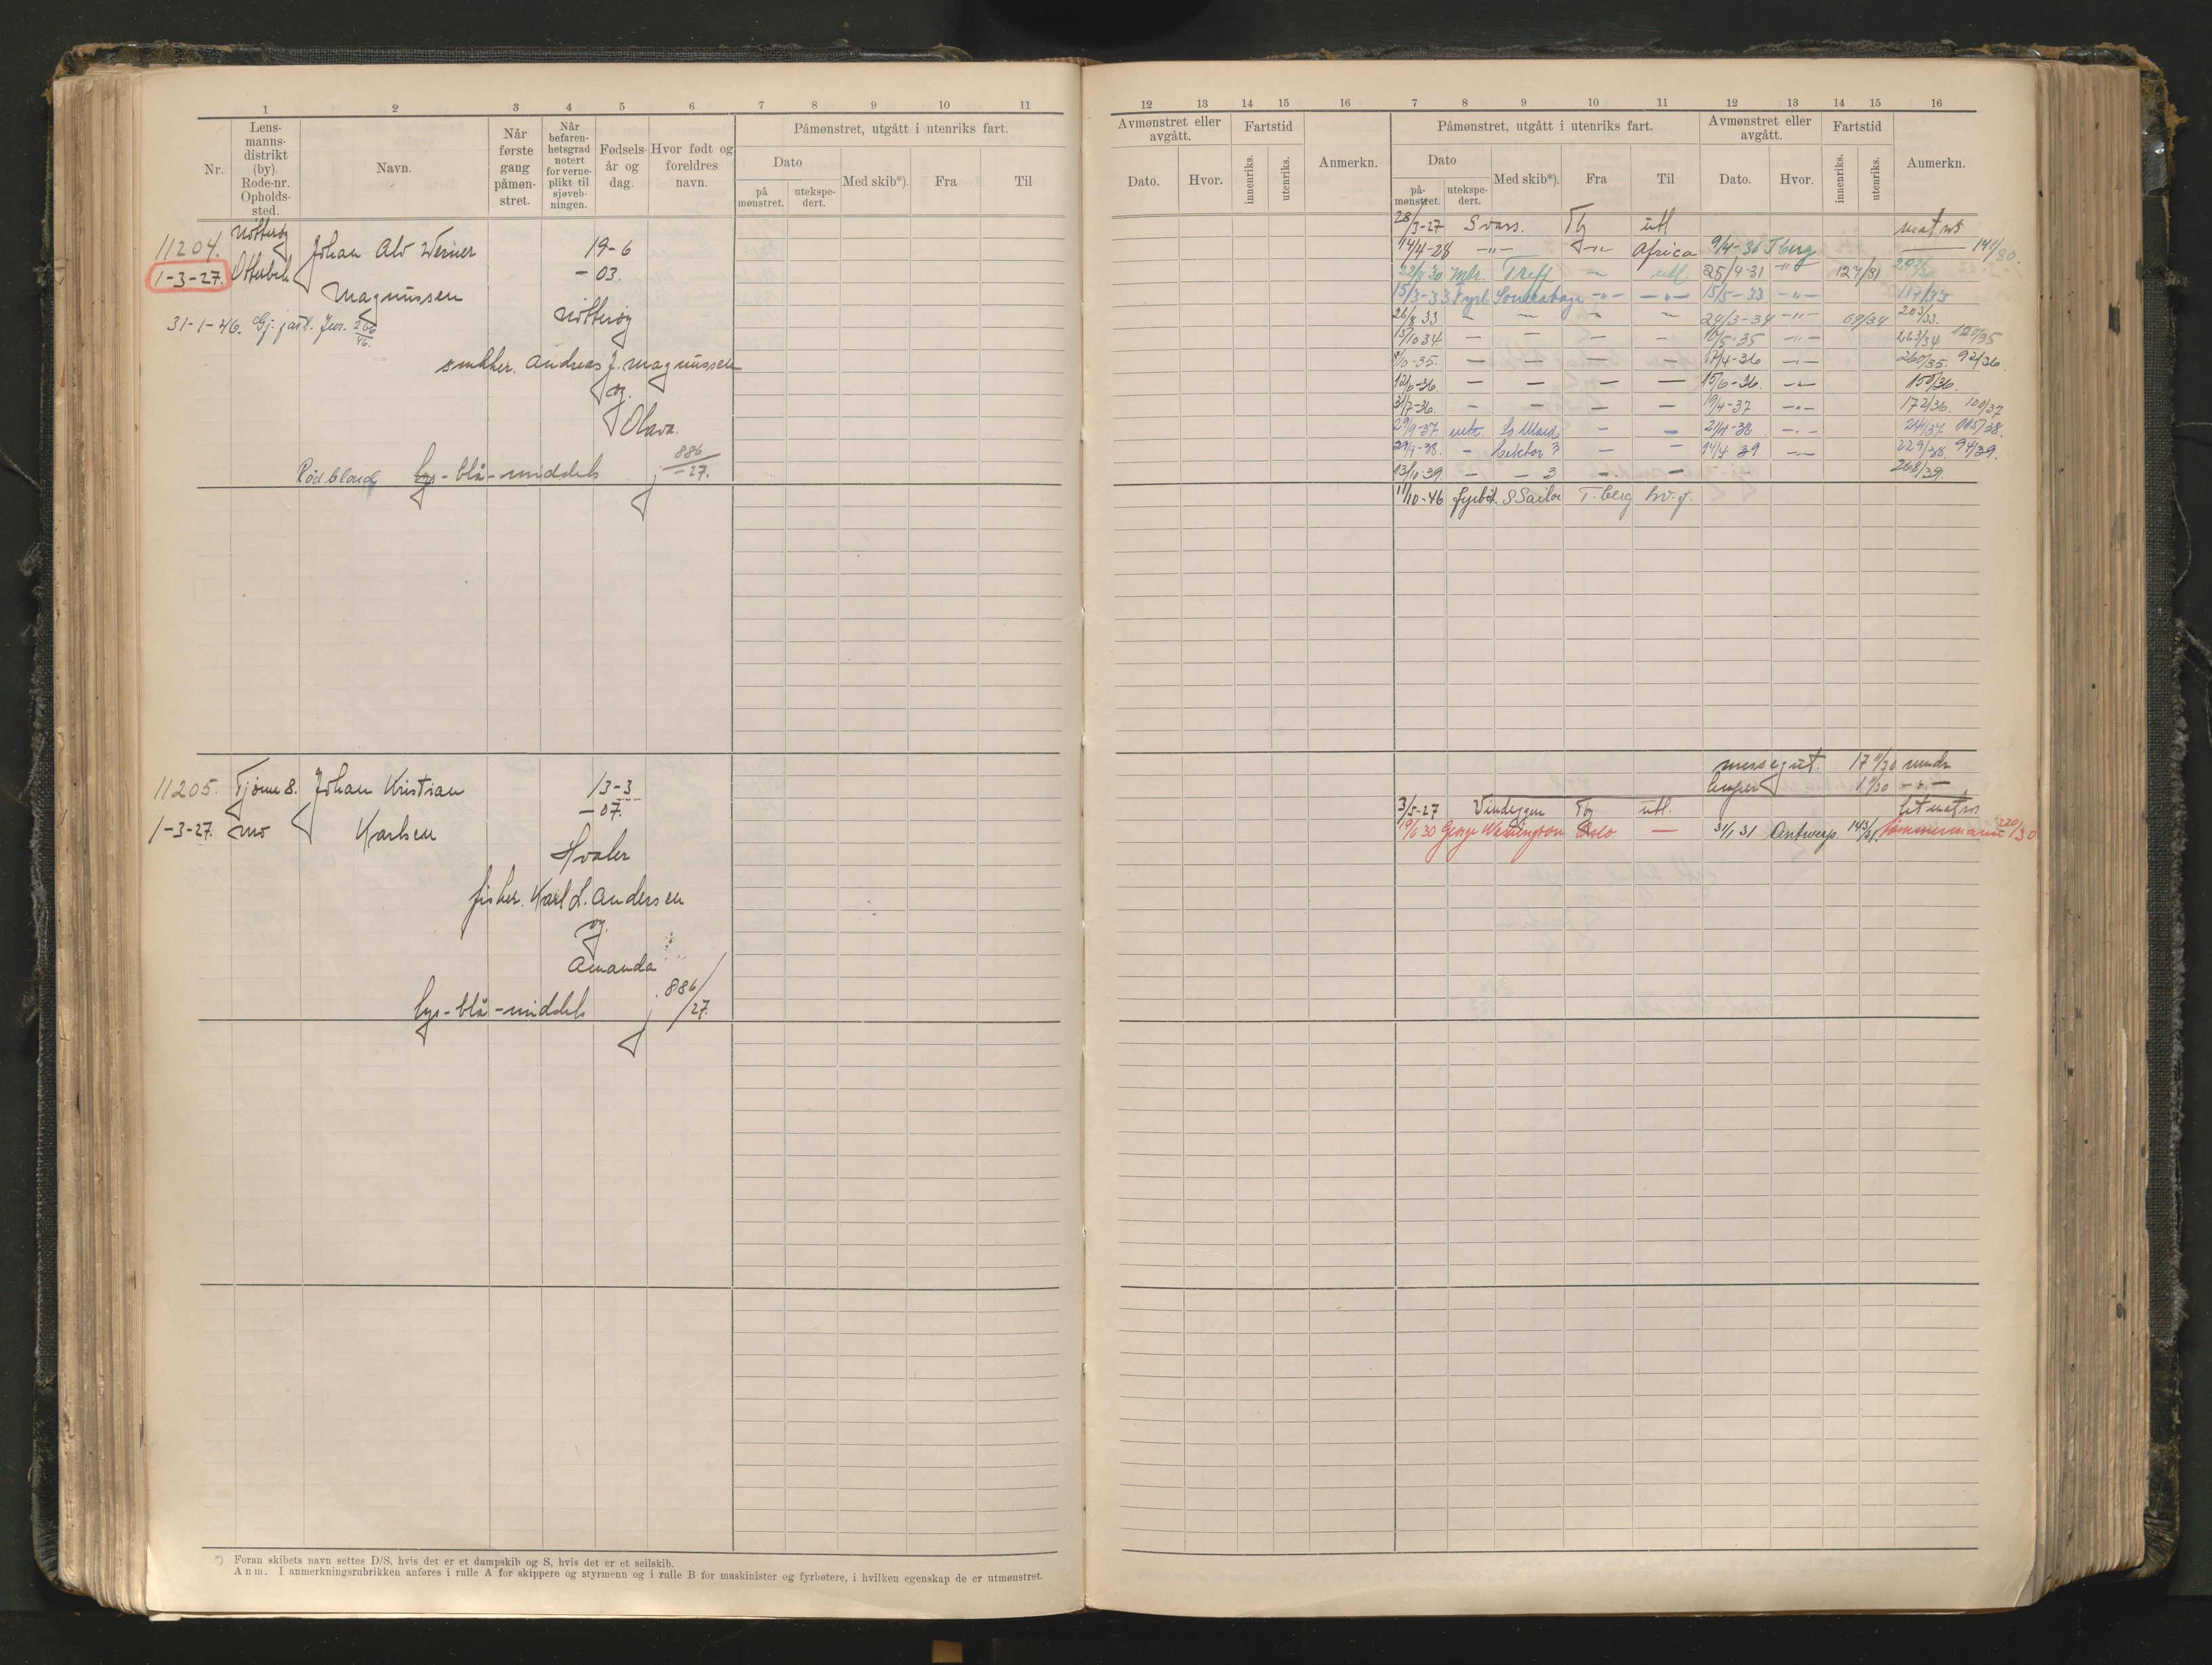 1 2 3 4 5 6 7 8 9 10 11
Nr. Lensmannsdistrikt (by). Rode-nr. Opholdssted. Navn. Når første gang påmønstret. Når befarenhetsgrad notert for verneplikt til sjøvebningen. Fødselsår og dag. Hvor født og foreldres navn.
Påmønstret, utgått i utenriks fart.
Dato
på mønstret. utekspedert. Med skib*). Fra Til
Nøtterøy
11204. Johan Alv Werner 19-6
1-3-27. Otterbek -03.
Magnussen
Nøtterøy
31-1-46.
Andreas J. Magnussen
og
Olava.
Rødblond lys-blå-middels j 886/-27.
11205. Tjøme 8. Johan Kristian 13-3
-07.
1-3-27. Mo Karlsen
Hvaler
fisker. Karl L. Andersen
og
Amanda
lys-blå-middels j. 886/27.
*) Foran skibets navn settes D/S, hvis det er et dampskib og S, hvis det er et seilskib.
Anm. I anmerkningsrubrikken anføres i rulle A for skippere og styrmenn og i rulle B for maskinister og fyrbøtere, i hvilken egenskap de er utmønstret.
12 13 14 15 16 7 8 9 10 11 12 13 14 15 16
Avmønstret eller avgått. Fartstid Påmønstret, utgått i utenriks fart. Avmønstret eller avgått. Fartstid
Dato. Hvor. innenriks. utenriks. Anmerkn. Dato Med skib*). Fra Til Dato. Hvor. innenriks. utenriks. Anmerkn.
påmønstret. utekspedert.
28/3-27 Svars. Tbg utl matros
14/4-28 -"- -"- Africa 9/4-30 Tberg 141/30.
22/8 30 Mtr. Treff - utl 25/4-31 -"- 127/31
15/3-33 Fyrb -"- -"- 15/5-33 -"- 117/33
26/8 33 - - - - 24/3-34 -"- 69/34 203/33.
13/10 34 - - - - 10/5-35 -"- 263/34 120/35
8/10-35. - - - - 17/4-36 -"- 260/35. 92/36
12/6-36. - - - - 15/6-36. -"- 150/36.
31/7-36. - - - - 19/4-37 -"- 172/36. 100/37
29/9-37. - - 21/4-38 -"- 115/38.
29/9-38. - - - 14/4 39 -"- 229/38 94/39.
13/10-39. - - 3 - - 268/39.
11/10-46 fyrbøt. S. Sailor T.berg hv.f.
messegut. 17
1 -"-
3/5-27 Vindeggen Tbg utl. Letmatros.
19/6 30 George Washington Oslo - 31/1 31 Antwerp. 143/31. tømmermann 220/30